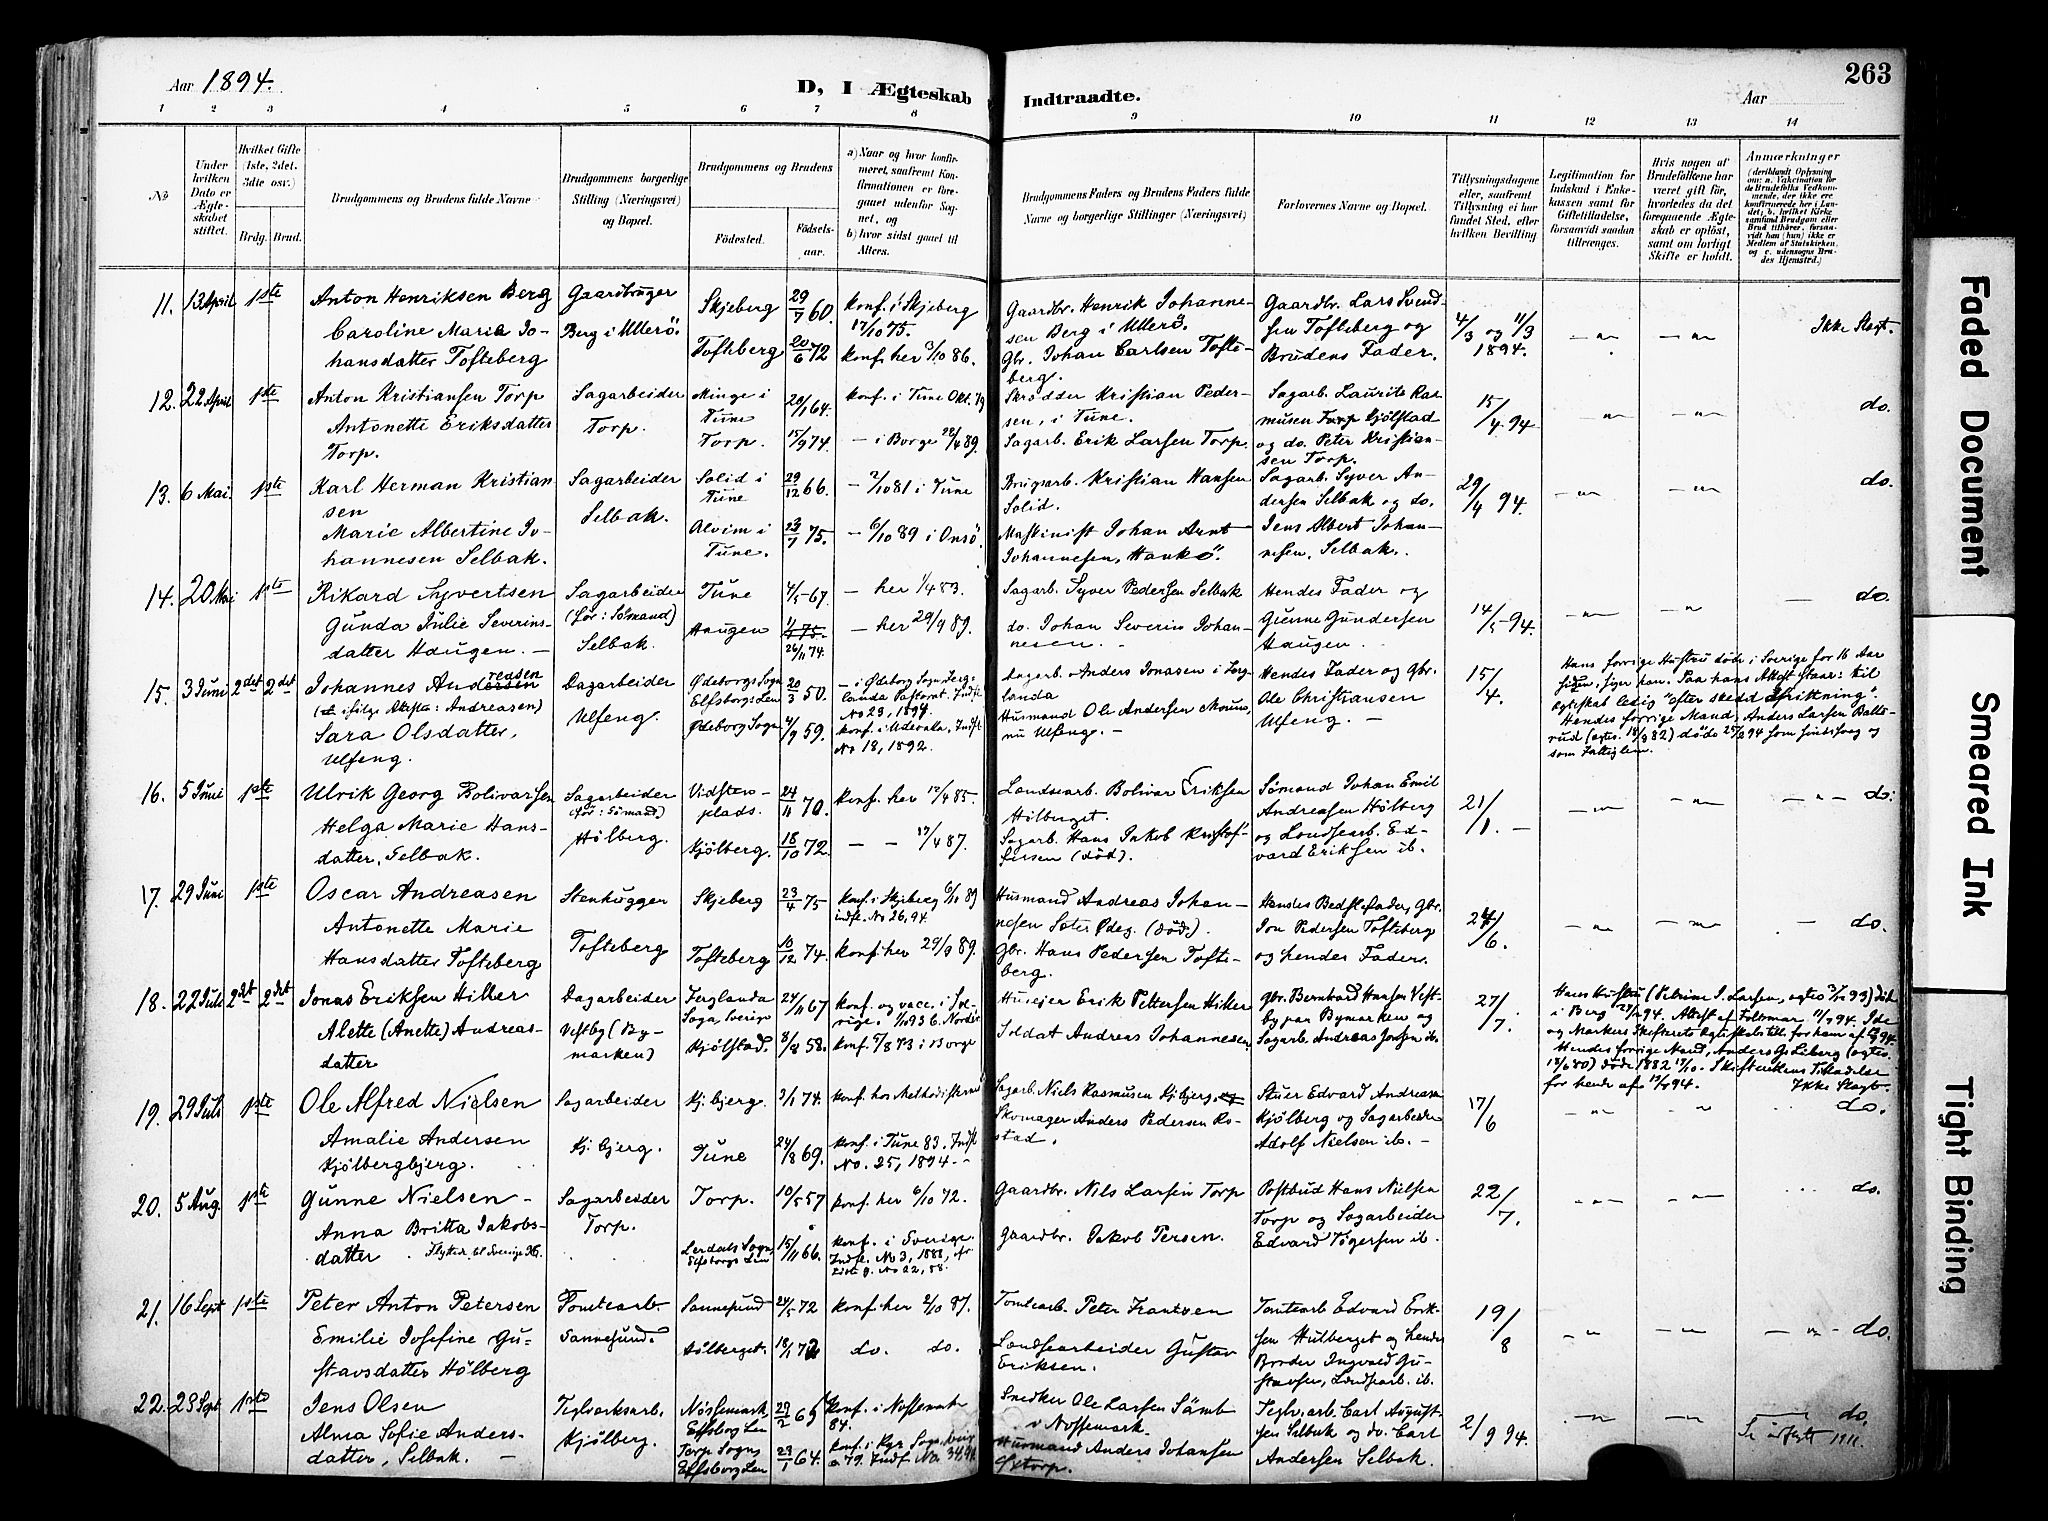 Aar 1894.
D, I Ægteskab Indtraadte.
Aar
263
1 2 3 4 5 6 7 8 9 10 11 12 13 14
No
Under hvilken Dato er Ægteskabet stiftet.
Hvilket Gifte (1ste, 2det, 3die osv.)
Brdg. Brud.
Brudgommens og Brudens fulde Navne
Brudgommens borgerlige Stilling (Næringsvei) og Bopæl.
Brudgommens og Brudens
Fødested.
Fødselsaar.
a) Naar og hvor konfirmeret, saafremt Konfirmationen er foregaaet udenfor Sognet, og
b) hvor sidst gaaet til Alters.
Brudgommens Faders og Brudens Faders fulde Navne og borgerlige Stillinger (Næringsvei)
Forlovernes Navne og Bopæl.
Tillysningsdagene eller, saafremt Tillysning ei har fundet Sted, efter hvilken Bevilling
Legitimation for Indskud i Enkekassen samt for Giftetilladelse, forsaavidt saadan tiltrænges.
Hvis nogen af Brudefolkene har været gift før, hvorledes da det foregaaende Ægteskab er opløst, samt om lovligt Skifte er holdt.
Anmærkninger
11. 13 April 1ste Anton Henriksen Berg Gaardbruger Skjeberg 29/7 60. konf. i Skjeberg 17/10 75. Gaardbr. Henrik Johannesen Berg i Ullerö. Gaardbr. Lars Svendsen Tofteberg og 4/3 og 11/3 1894. Ikke Slegt.
Caroline Maria Johansdatter Tofteberg Berg i Ullerö. Tofteberg 20/6 72 konf. her 3/10 86. Gbr. Johan Carlsen Tofteberg. Brudens Fader.
12. 22 April 1ste Anton Kristiansen Torp Sagarbeider Minge i Tune 20/1 64. konf. i Tune Okt. 79 Skrædder Kristian Pedersen, i Tune. Sagarb. Laurits Rasmusen Torp Kjölstad 15/4 94 do.
Antonette Eriksdatter Torp. Torp. Torp. 15/9 74. – i Borge 22/4 89. Sagarb. Erik Larsen Torp. og do. Peter Kristiansen Torp.
13. 6 Mai 1ste Karl Herman Kristiansen Sagarbeider Solid i Tune 29/12 66. – 2/10 81 i Tune Brugsarb. Kristian Hansen Solid. Sagarb. Syver Andersen Selbak og do. 29/4 94. do.
Marie Albertine Johannesen Selbak. Selbak. Alvim i Tune. 23/7 75. – 6/10 89 i Onsö. Maskinist Johan Arnt Johannesen, Hankö. Jens Albert Johannesen, Selbak.
14. 20 Mai 1ste Rikard Syvertsen Sagarbeider (før: Sømand) Tune 4/5 67. – her 1/4 83. Sagarb. Syver Pedersen Selbak Hendes Fader og 14/5 94. do.
Gunda Julie Severinsdatter Haugen. – Selbak. Haugen 26/11 74. – her 29/9 89. do. Johan Severin Johannesen. Gunne Gundersen Haugen.
15. 3 Juni 2det 2det Johannes Andreasen Dagarbeider Ødeborgs Sogn Elfsborgs Len 20/3 50. – i Ødeborg Sogn Indf. No 23, 1894. Dagarb. Anders Jonasen Hendes Fader og Gbr. 15/4.
(ifølge Attesten: Andreasen) Sara Olsdatter, Ulfeng. Ulfeng. Ødeborg Sogn 4/9 59. konf. i Udevalla, Indft No 18, 1892. Husmand Ole Andersen nu Ulfeng. – Ole Christiansen Ulfeng. –
Hans forrige Hustru døde i Sverige for 16 Aar siden, siger han. Paa hans Attest staar: til Ægteskab ledig "efter skedd afvittning".
Hendes forrige Mand, Anders Larsen
16. 5 Juni 1ste Ulrik Georg Bolivarsen Sagarbeider (før: Sömand) Vidstenplads. 24/11 70. konf. her 12/4 85. Landsearb. Bolivar Eriksen Hilberget. Sömand Johan Emil Andreasen Hølberg 21/1. – do.
Helga Marie Hansdatter, Selbak. Hølberg. Kjølberg. 18/10 72. – – 17/4 87. Sagarb. Hans Jakob Kristofersen (død). og Landsearb. Edvard Eriksen ib.
17. 29 Juni 1ste Oscar Andreasen Stenhugger Skjeberg 23/4 75 konf. i Skjeberg 6/10 89 indf. No 26, 94. Husmand Andreas Johannesen (død). Hendes Bedstefader, Gbr. Jon Pedersen Tofteberg 24/6. do.
Antonette Marie Hansdatter Tofteberg Tofteberg Tofteberg 16/12 74. konf. her 29/9 89. Gbr. Hans Pedersen Tofteberg. og hendes Fader.
18. 22 Juli 2det 2det Jonas Eriksen Hilker Dagarbeider Ferglanda Sogn, Sverige 24/11 67 konf. og vacc. i Sverige. Husejer Erik Pettersen Hilker Gbr. Bernhard Hansen Vestby paa Bymarken og 27/7.
Alette (Anette) Andreasdatter Vestby (Bymarken) Kjølstad. 8/8 58. konf. 5/8 73 i Borge Soldat Andreas Johannesen. Sagarb. Andreas ib.
Ikke Slegt.
19. 29 Juli 1ste Ole Alfred Nielsen Sagarbeider Kj. bjerg. 2/1 74. konf. hos Methodisterne Sagarb. Niels Rasmusen Kj. bjerg. Stuer Edvard Andreasen 17/6 do.
Amalie Andersen Kjölbergbjerg. Kj. bjerg. Tune 24/8 69. konf. i Tune 83. Indft No. 25, 1894. – Skomager Anders Pedersen Rostad. Kjölberg og Sagarbeider Adolf Nielsen ib. –
20. 5 Aug. 1ste Gunne Nielsen – Sagarbeider Torp. 10/5 57 konf. her 6/10 72. Gaardbr. Nils Larsen Torp Postbud Hans Nielsen 22/7. do.
Anna Britta Jakobsdatter. Flyttet til Sverige 96. Torp. Lerdals Sogn, Elfsborgs Len 15/11 66. konf. i Sverige. Indf. No 3, 1888, Gaardbr. Jakob Persen. Torp og Sagarbeider Edvard Tøgersen ib.
21. 16 Sept. 1ste Peter Anton Petersen Tomtearb. Sannesund 24/5 72 konf. her 2/10 87. Tomtearb. Peter Frantzen Tomtearb Edvard Eriksen Hulberget og hendes 19/8 do.
Emilie Josefine Gustavsdatter Hölberg Sannesund. Hölberget. 18/1 72 do. do. Landsearbeider Gustav Eriksen. Broder Ingvald Gustavsen, Landsearb. ib.
22. 23 Sept 1ste Jens Olsen Teglverksarb. Nössemark, Elfsborg Len 65 konf. i Nössemark 84. Snedker Ole Larsen Sämb i Nossemark. Teglv.arb. Carl Augustsen Selbak og do. Carl 2/9 94. do.
Alma Sofie Andersdatter, Selbak. – Kjølberg. Torp Sogn, Elfsborg Len 23/1 64. Husmand Anders Johansen Andersen Selbak. Se 1911.
Faded Document
Smeared Ink
Tight Binding